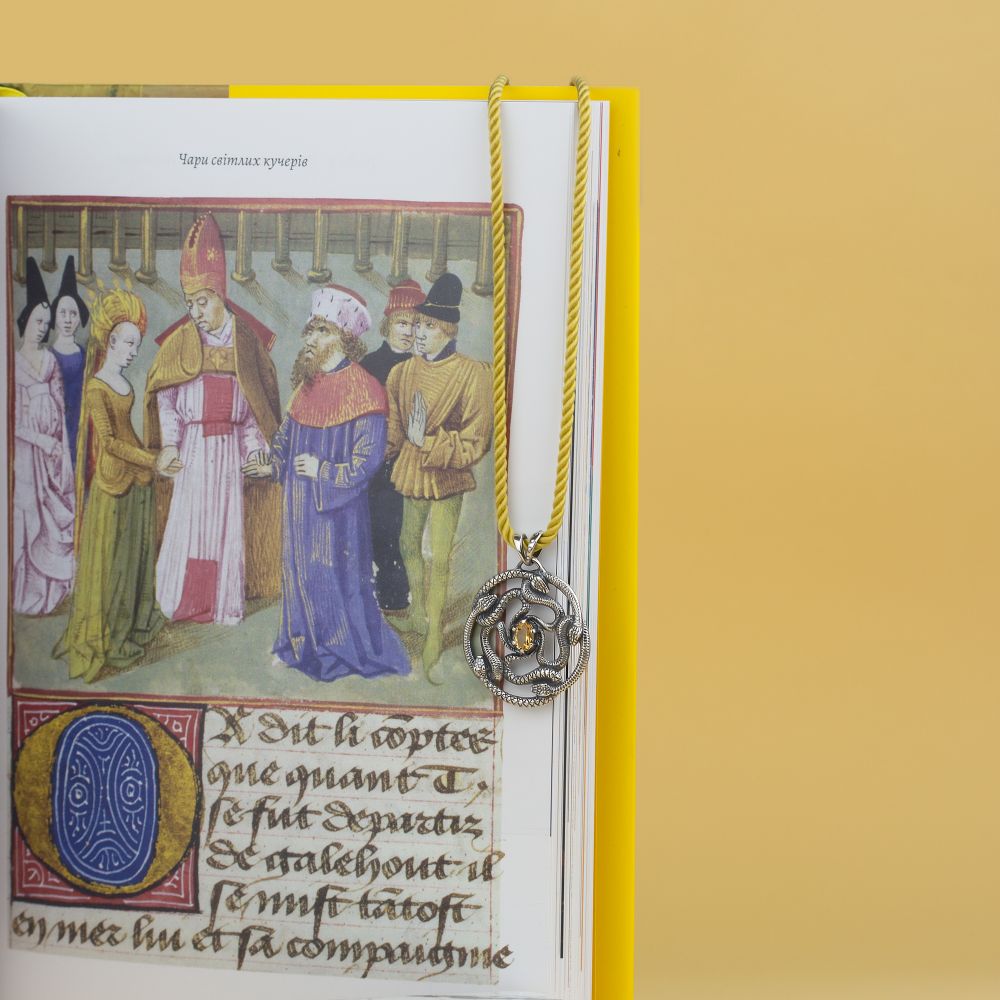 Чари світлих кучерів
Or dit li cōptes
que quant T.
se fut departiz
de galehout il
se mist tātost
en mer lui et sa compaignie